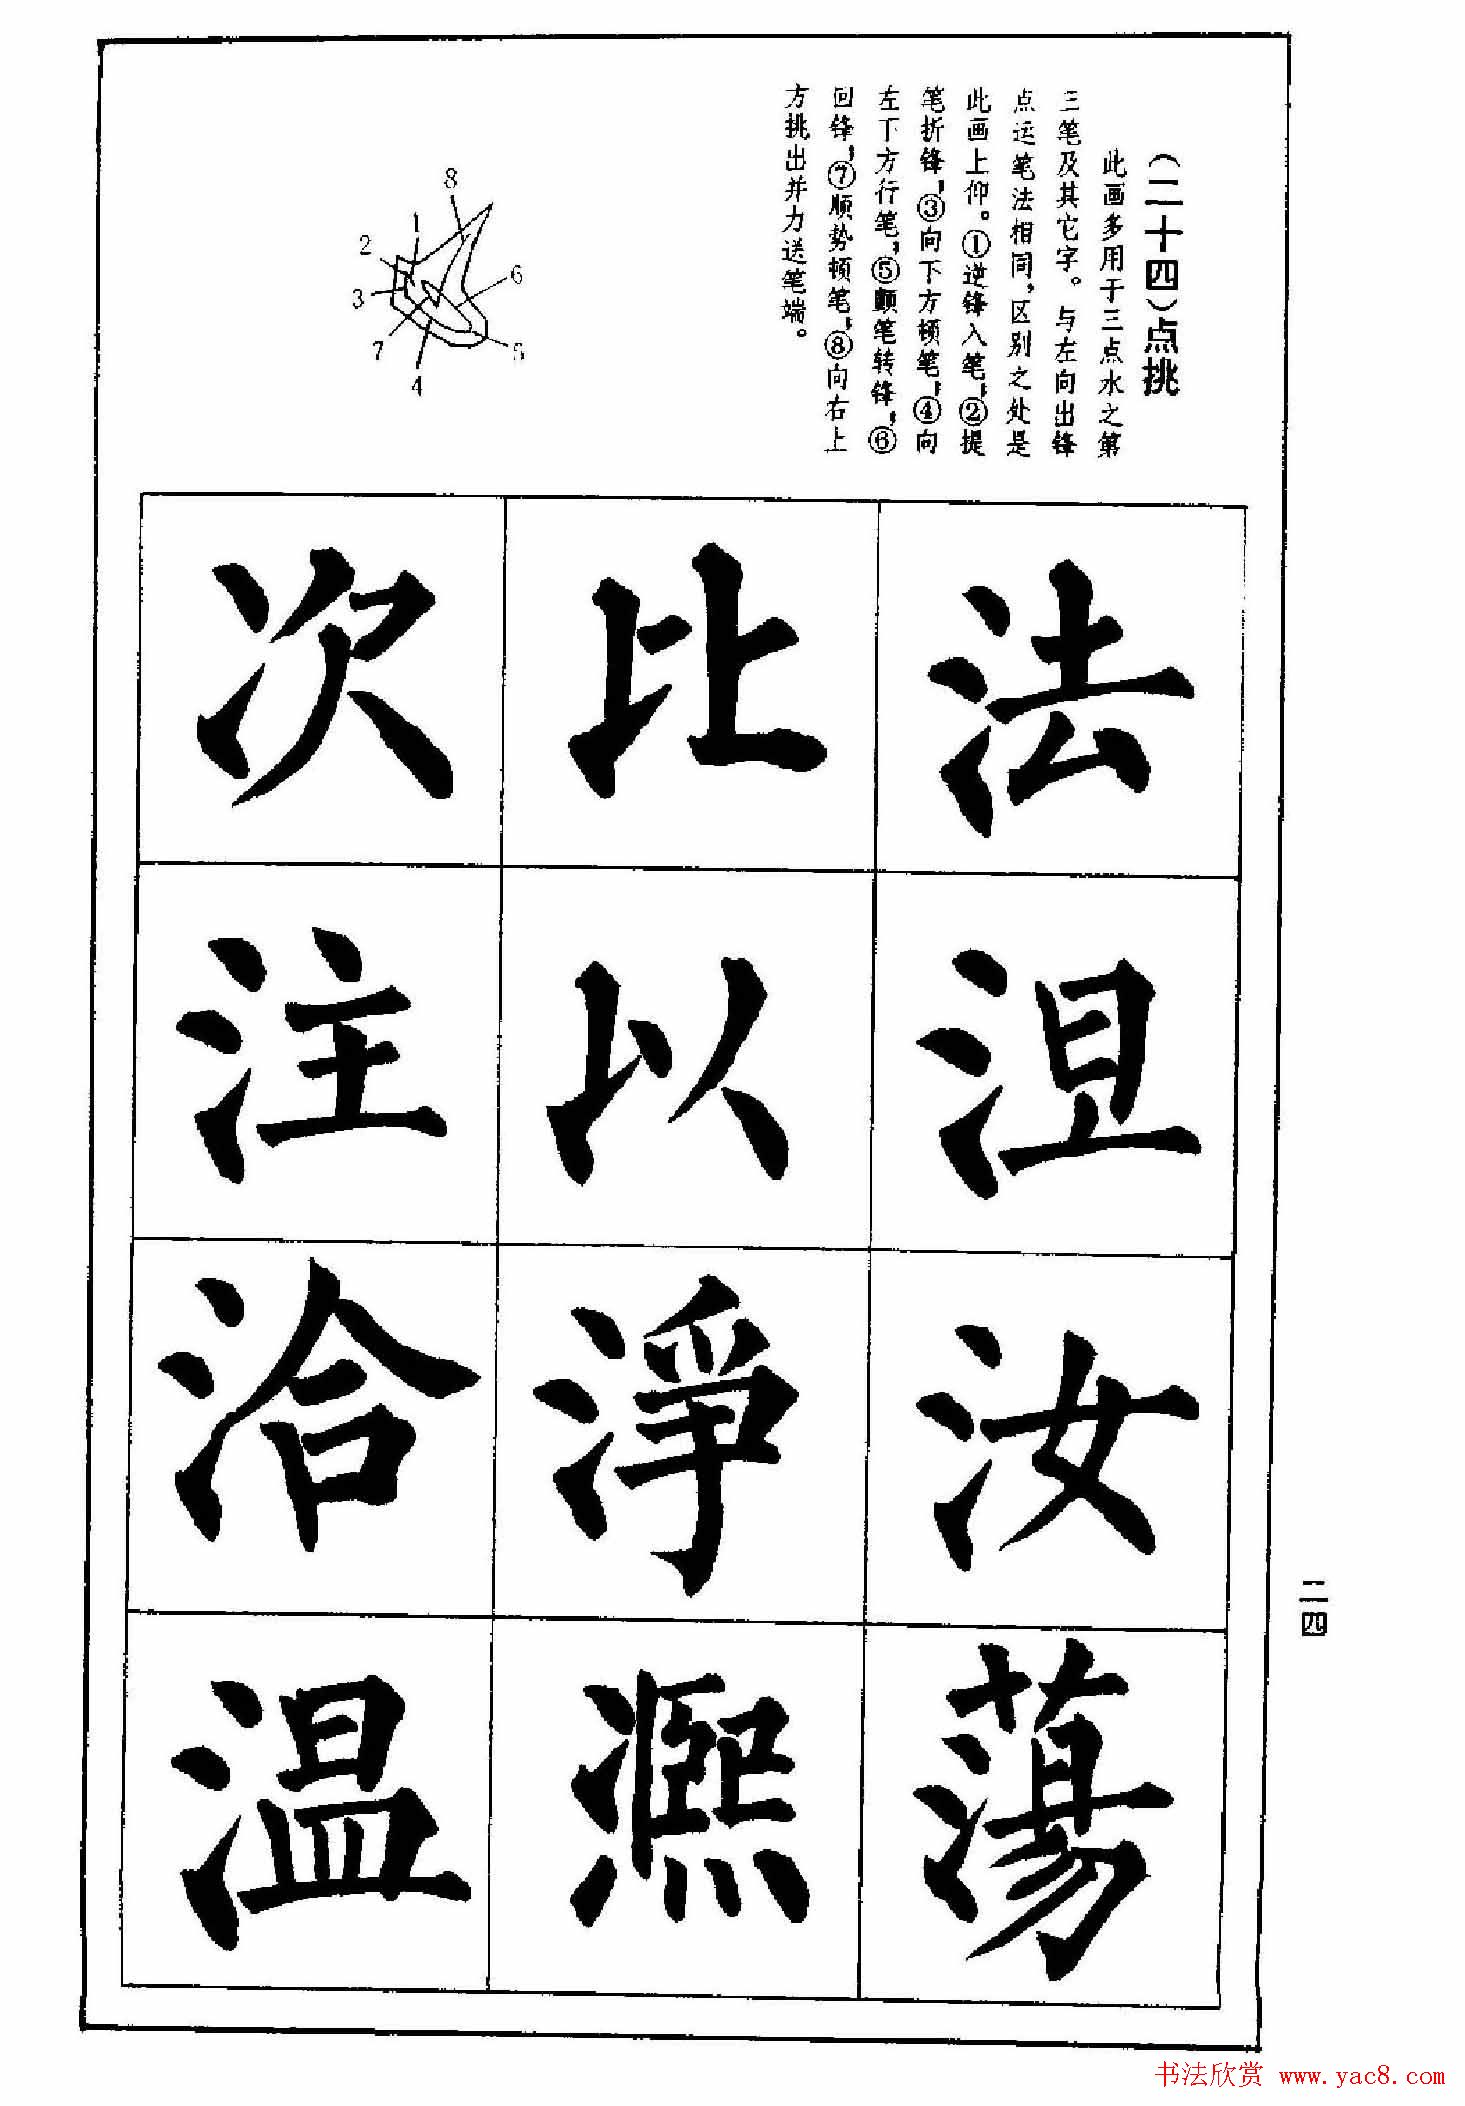 (二十四)点挑
此画多用于三点水之第
三笔及其它字。与左向出锋
点运笔法相同,区别之处是
此画上仰。①逆锋入笔;②提
笔折锋;③向下方顿笔;④向
左下方行笔;⑤颤笔转锋;⑥
回锋;⑦顺势顿笔;⑧向右上
方挑出并力送笔端。
1
2
3
4
5
6
7
8
法涅汝蕩
比以淨凞
次注洽温
二四
书法欣赏 www.yac8.com